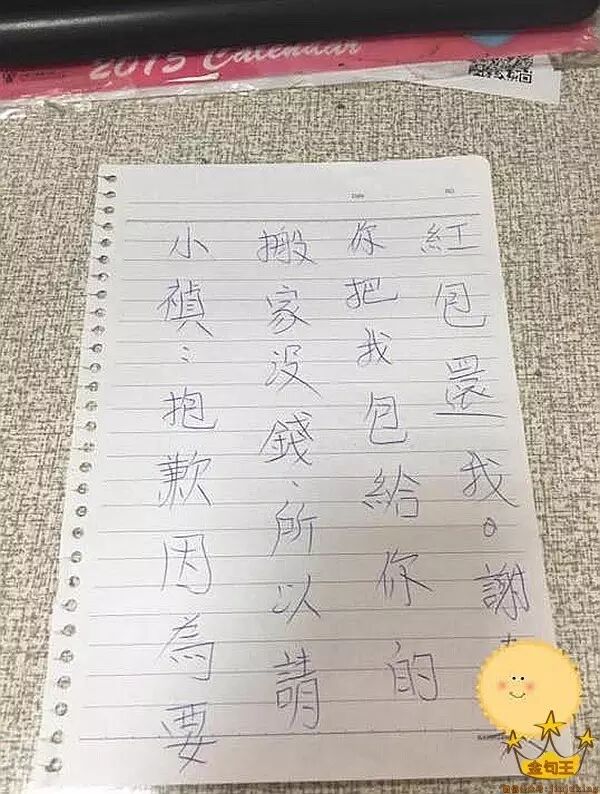 2015 Calendar
Date NO
小禎:抱歉因為要
搬家沒錢、所以請
你把我包給你的
紅包還我。謝
金句王